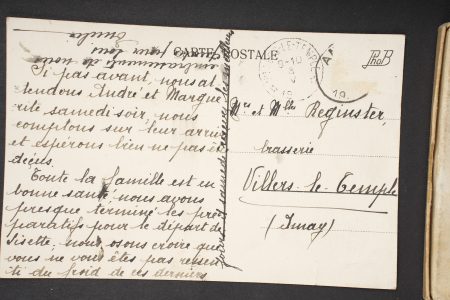 CARTE POSTALE
PhoB
Si pas avant, nous at
tendons André et Margue
rite samedi soir, nous
comptons sur leur arri
et espérons bien ne pas ê
déçus.
Toute la famille est en
bonne santé, nous avons
presque terminé les pré
paratifs pour le départ de
Lisette; nous osons croire que
vous ne vous êtes pas ressen
ti du froid de ces derniers
jours
pour tous
Mr et Melle Reginster,
brasserie
Villers-le-Temple
(Huy)
LE-TEMPLE